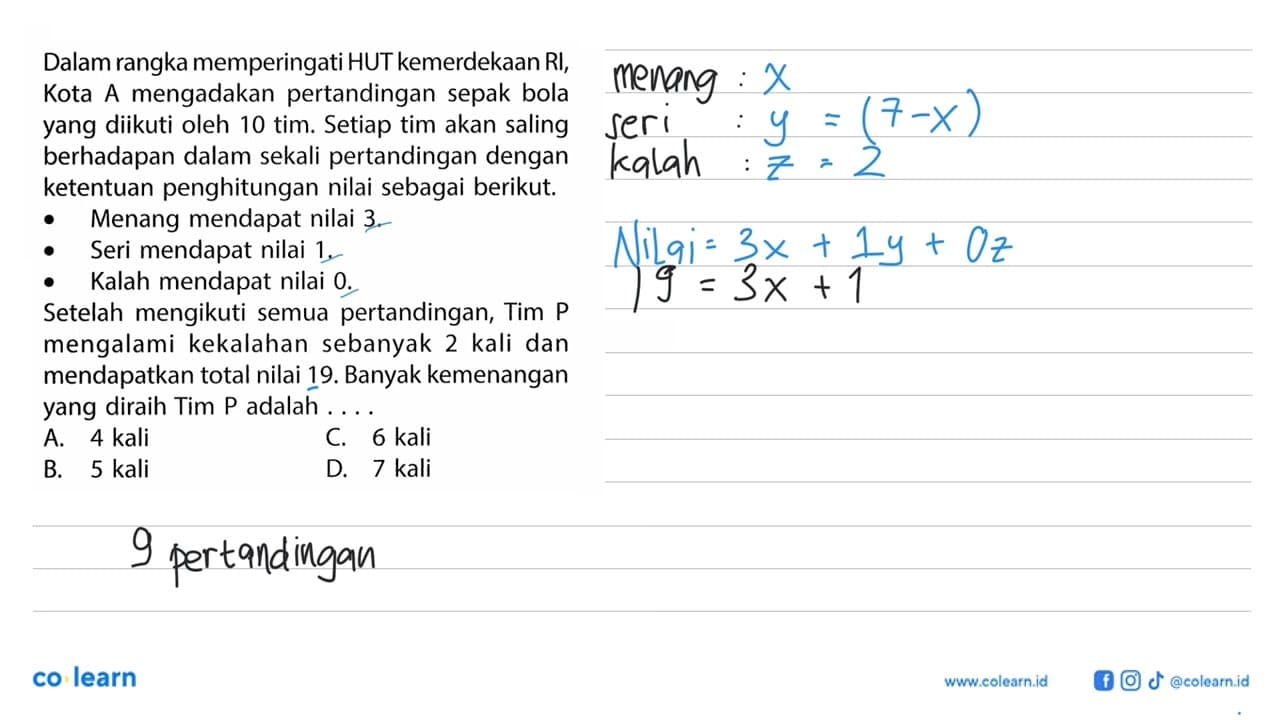 Dalam rangka memperingati HUT kemerdekaan RI,
Kota A mengadakan pertandingan sepak bola
yang diikuti oleh 10 tim. Setiap tim akan saling
berhadapan dalam sekali pertandingan dengan
ketentuan penghitungan nilai sebagai berikut.
• Menang mendapat nilai 3.
• Seri mendapat nilai 1.
• Kalah mendapat nilai 0.
Setelah mengikuti semua pertandingan, Tim P
mengalami kekalahan sebanyak 2 kali dan
mendapatkan total nilai 19. Banyak kemenangan
yang diraih Tim P adalah . . . .
A. 4 kali C. 6 kali
B. 5 kali D. 7 kali
menang : x
seri : y = (7-x)
kalah : z = 2
Nilai = 3x + 1y + 0z
19 = 3x + 1
9 pertandingan
co learn
www.colearn.id @colearn.id